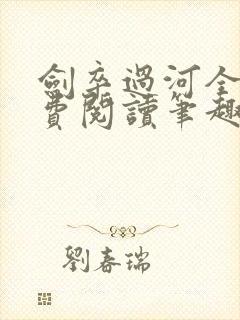 劍卒過河全
費閱讀筆趣
劉春瑞